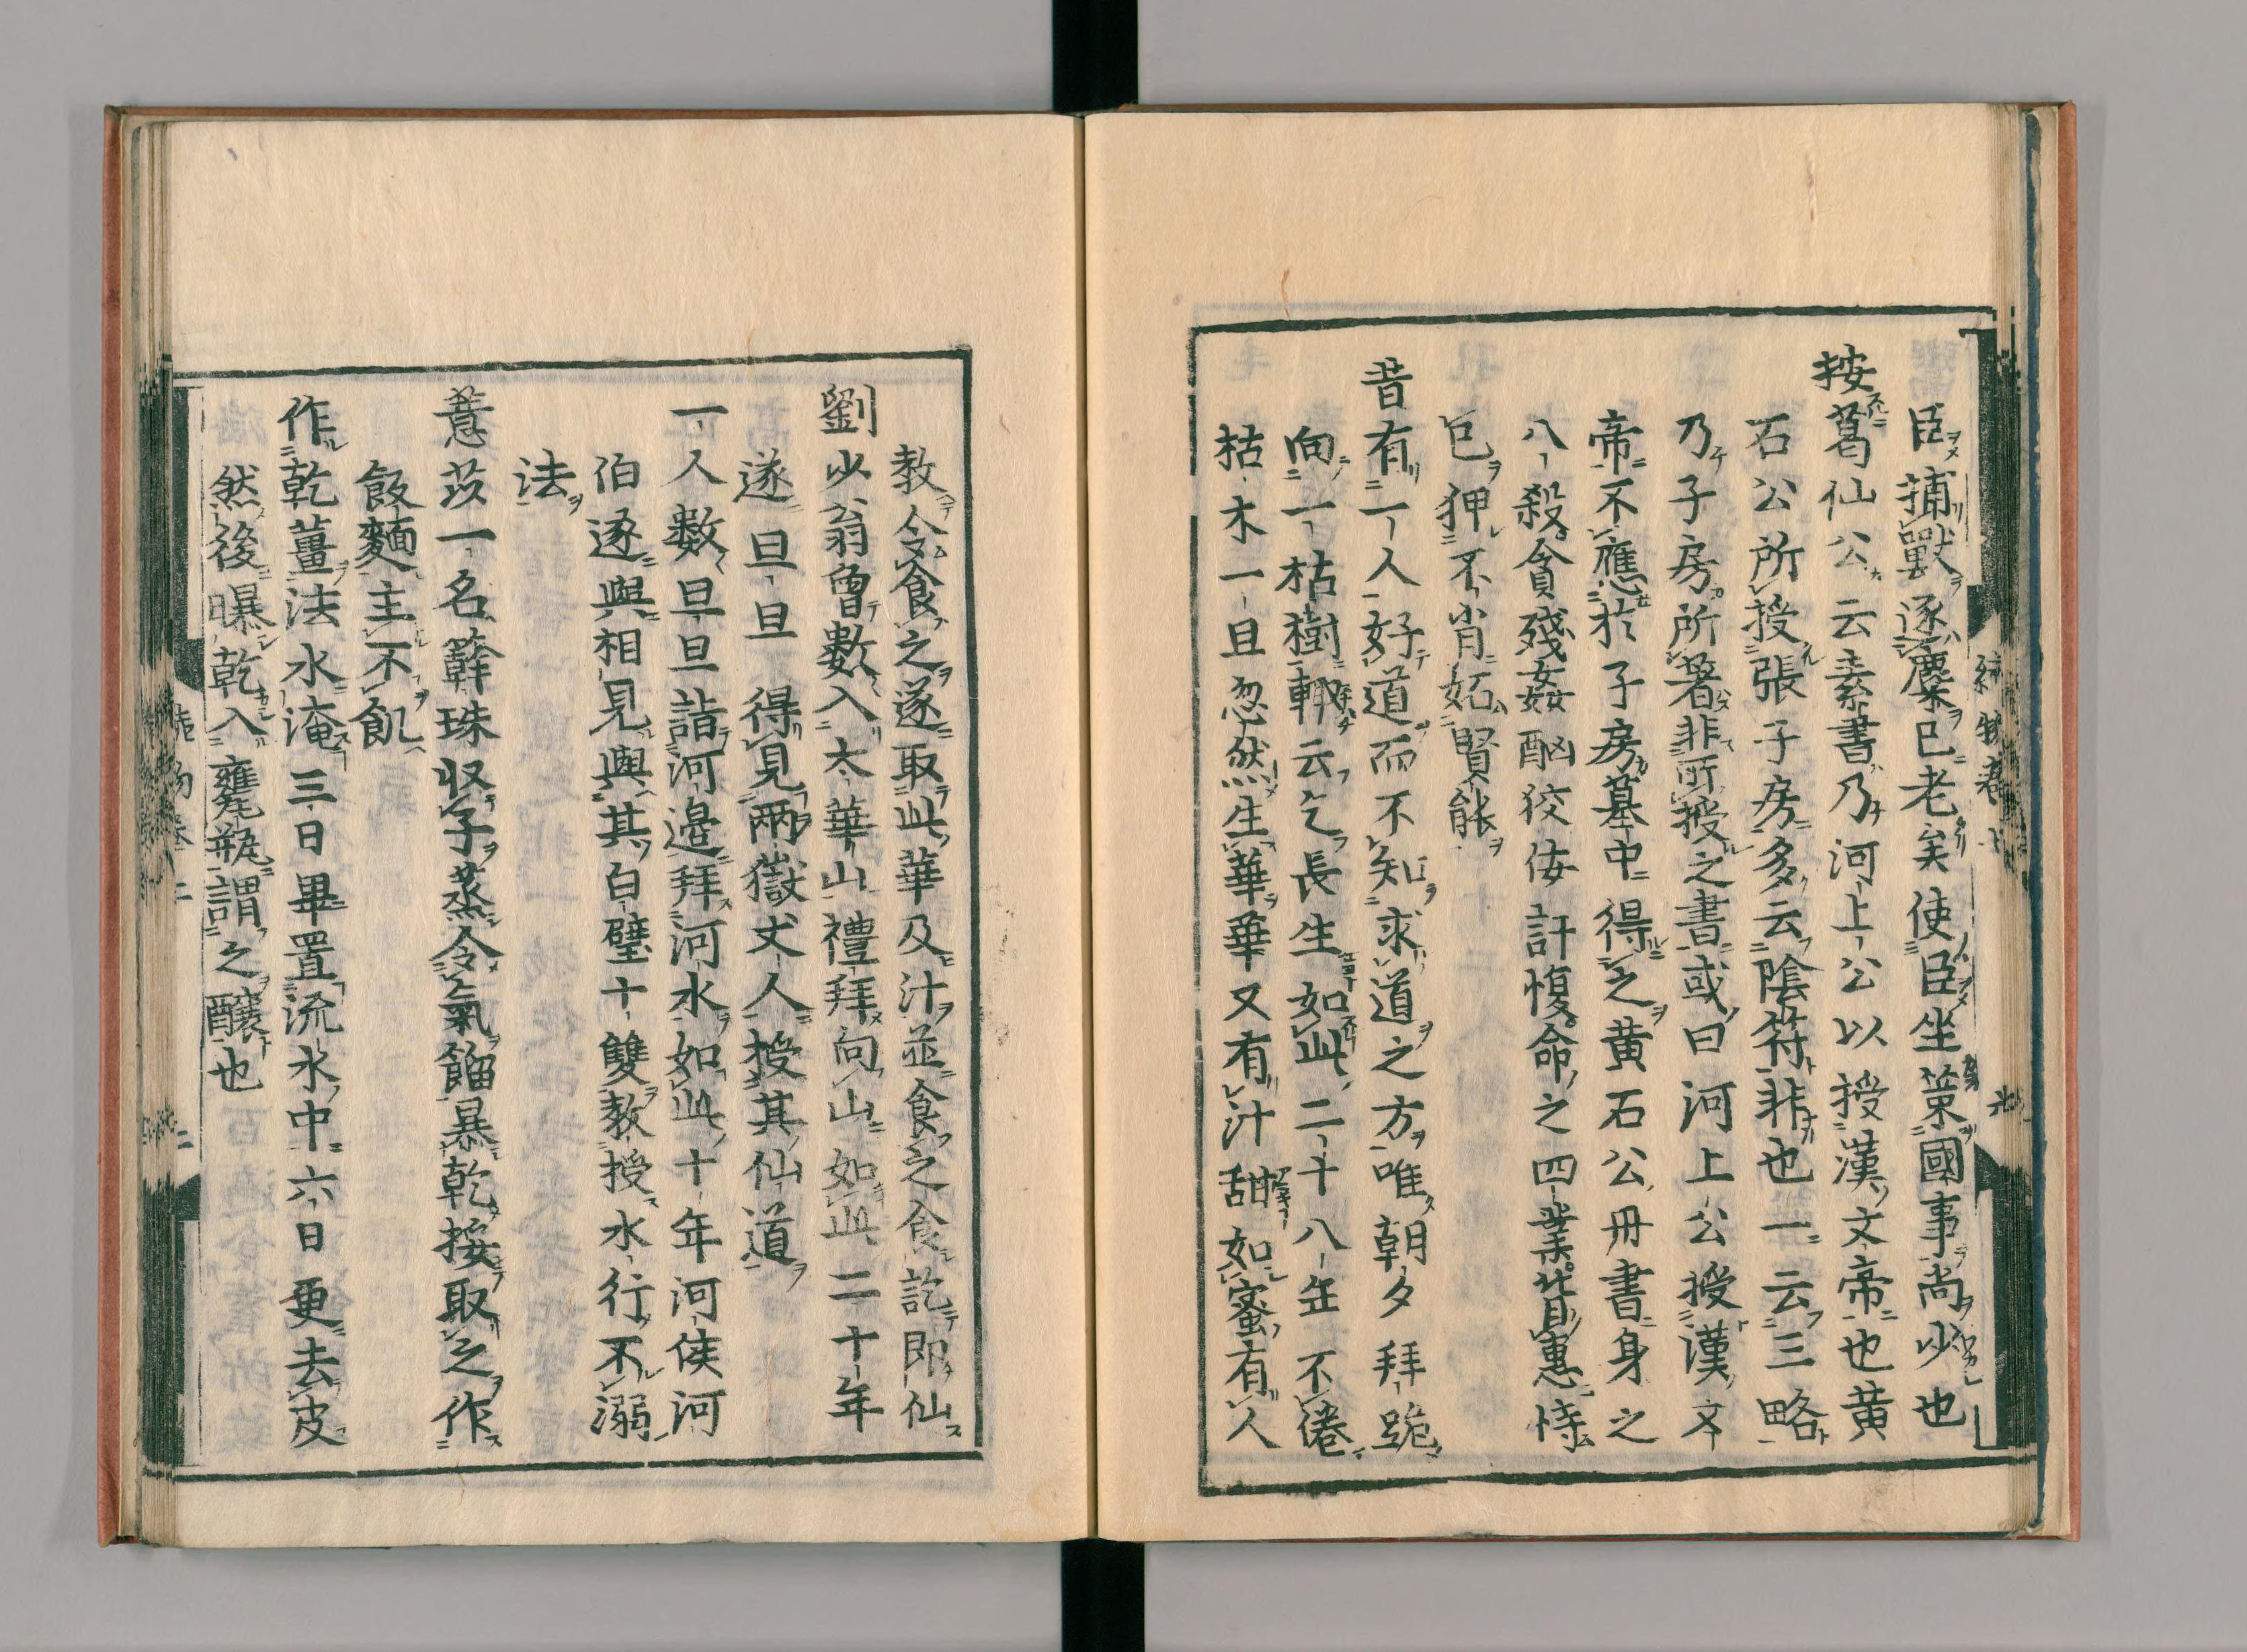 臣捕獸逐麋已老矣使臣坐策國事尚少也
按葛仙公云素書乃河上公以授漢文帝也黄
石公所授張子房多云陰符非也一云三略
乃子房所著非所授之書或曰河上公授漢文
帝不應於子房墓中得之黄石公冊書身之
八殺貪殘姦酗狡佞訐愎命之四業背惠恃
己狎不肖妬賢能
昔有一人好道而不知求道之方唯朝夕拜跪
向一枯樹輙云乞長生如此二十八年不倦
枯木一旦忽然生華華又有汁甜如蜜有人
教令食之遂取此華及汁並食之食訖即仙
劉少翁曾數入太華山禮拜向山如此二十年
遂旦旦得見兩嶽丈人授其仙道
一人數旦旦詣河邉拜河水如此十年河侯河
伯遂與相見與其白璧十雙教授水行不溺
法
薏苡一名簳珠収子蒸令氣餾暴乾挼取之作
飯麵主不飢
作乾薑法水淹三日畢置流水中六日更去皮
然後曝乾入甕瓶謂之釀也